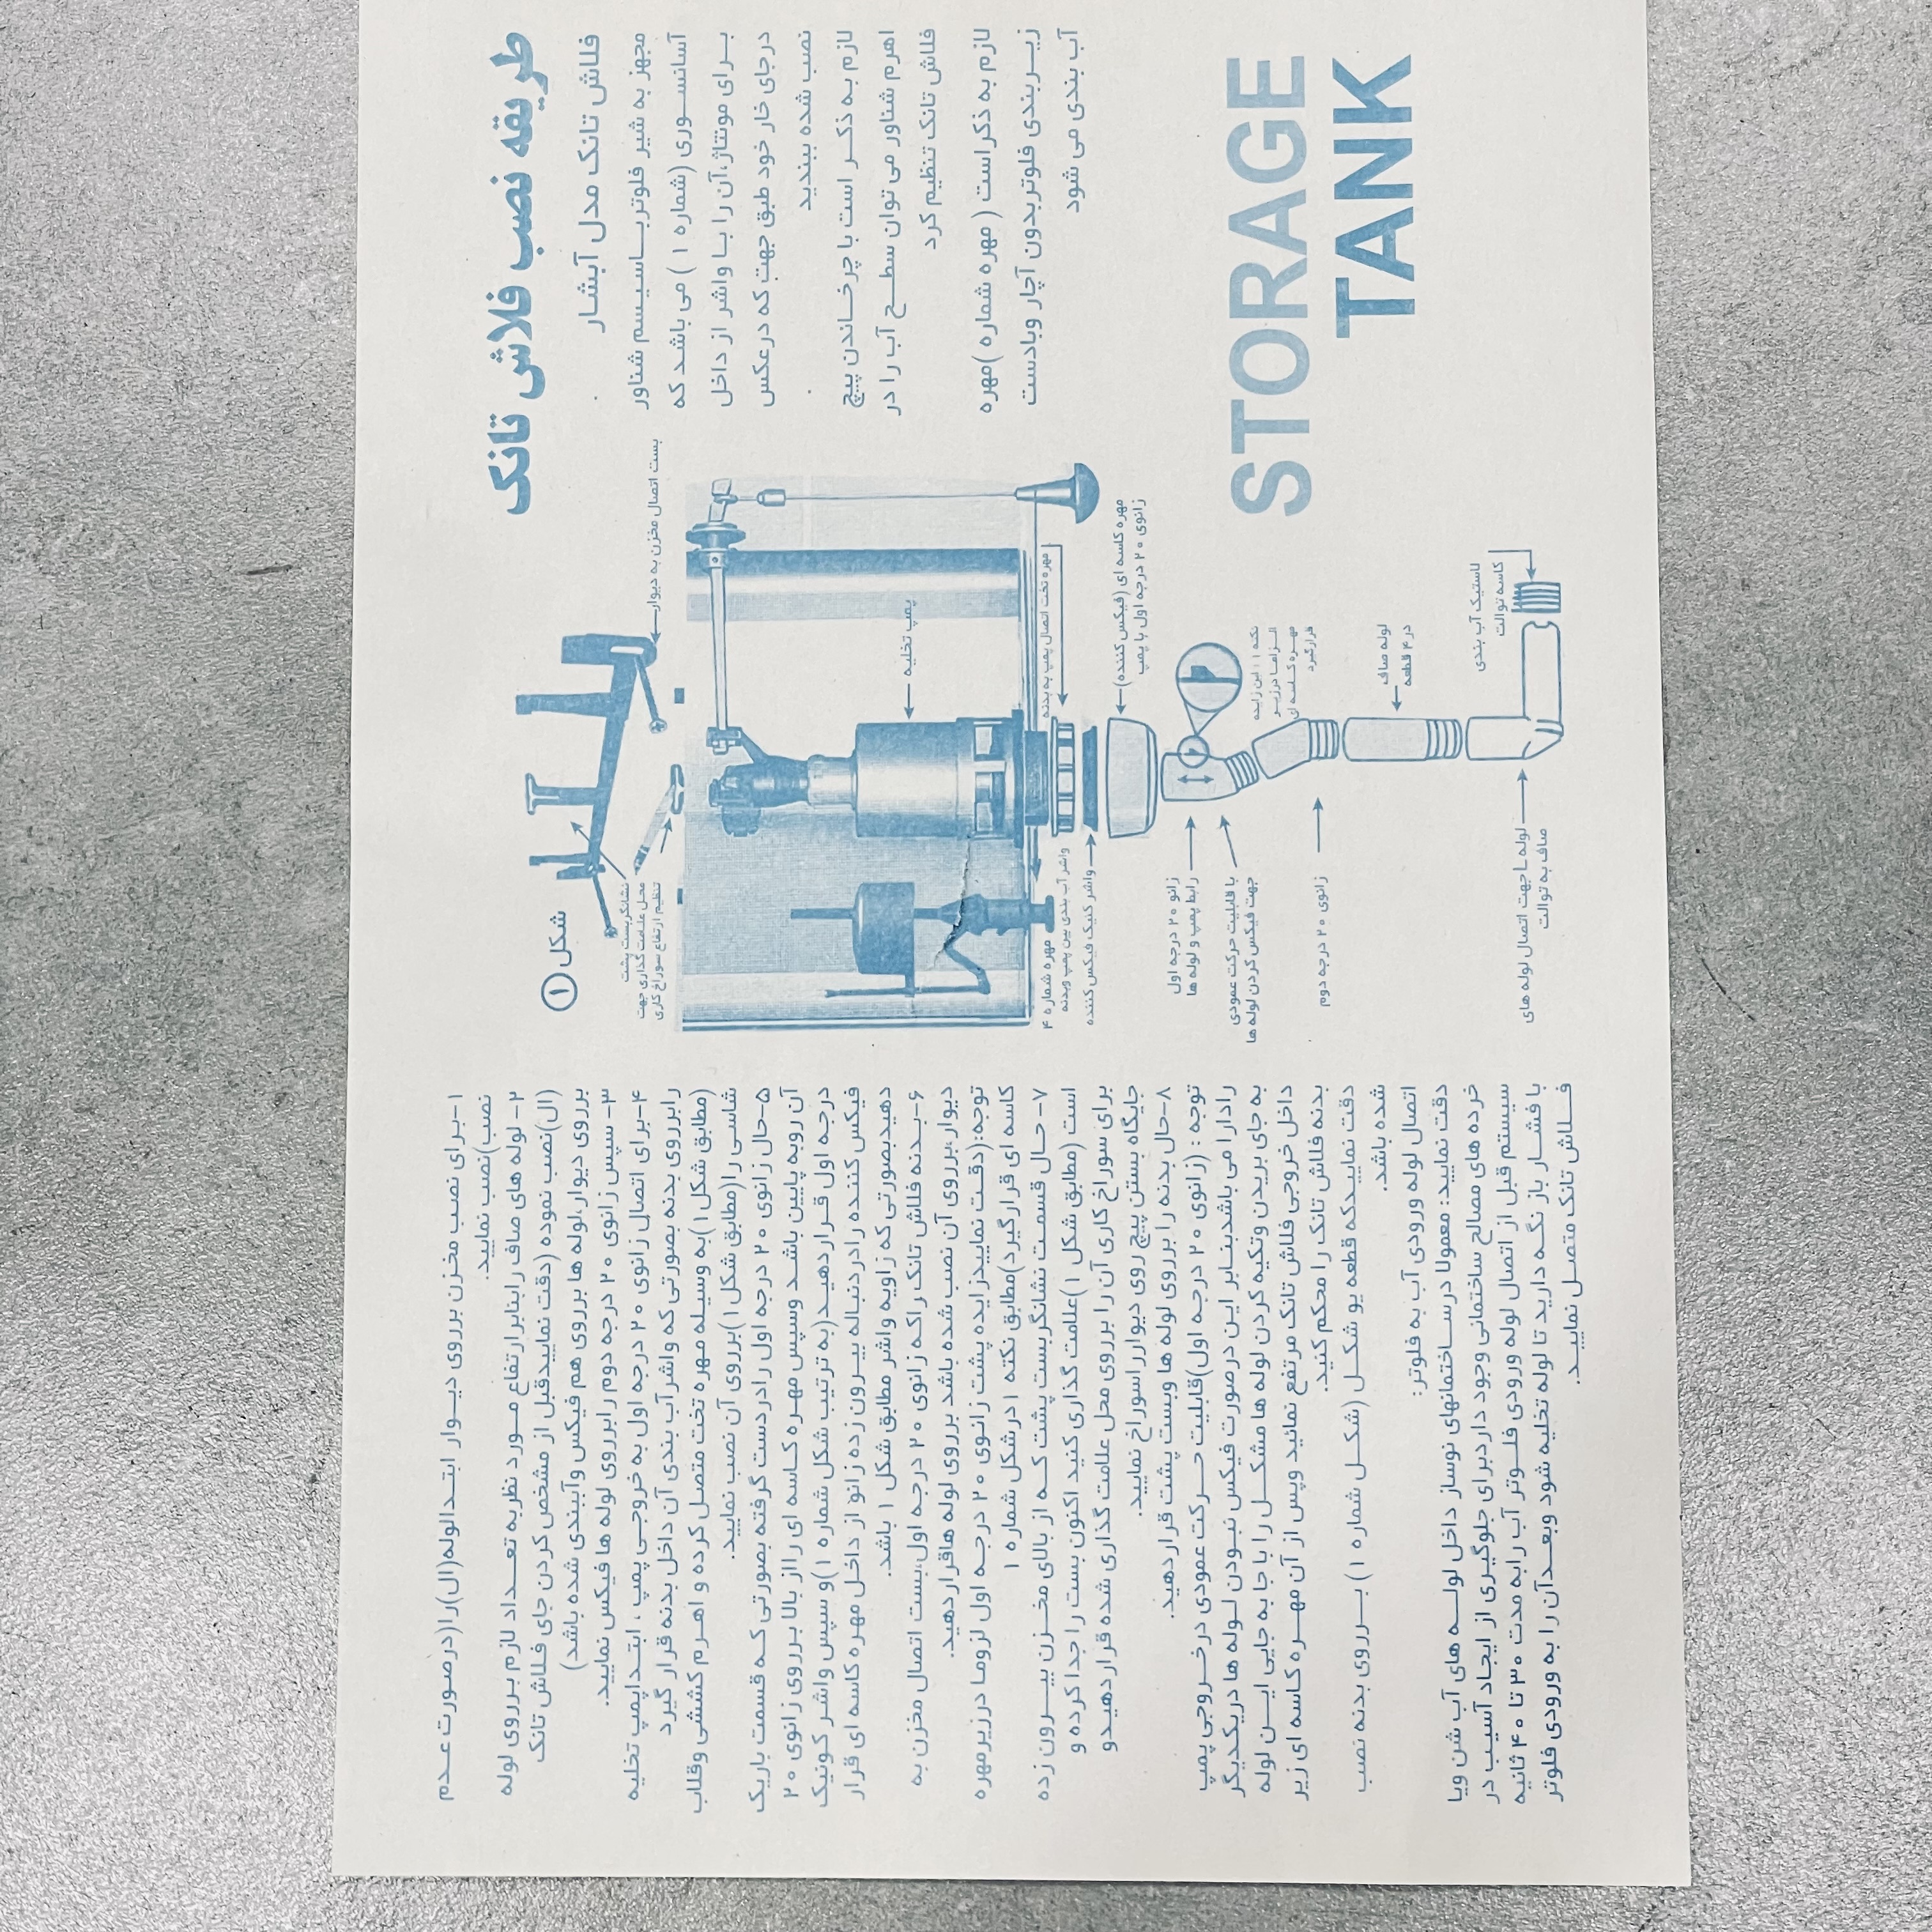 طریقه نصب فلاش تانک
فلاش تانک مدل آبشار
مجهز به شیر فلوتر باسیسم شناور
آسانسوری (شماره ۱ ) می باشد که
برای مونتاژ،آن را با واشر از داخل
درجای خار خود طبق جهت که درعکس
نصب شده ببندید
لازم به ذکر است با چرخاندن پیچ
اهرم شناور می توان سطح آب را در
فلاش تانک تنظیم کرد
لازم به ذکراست ( مهره شماره )مهره
زیربندی فلوتربدون آچار وبادست
آب بندی می شود
STORAGE
TANK
شکل ۱
بست اتصال مخزن به دیوار
نشانگربست پشت
محل علامت گذاری جهت
تنظیم ارتفاع سوراخ کاری
پمپ تخلیه
مهره تخت اتصال پمپ به بدنه
مهره کاسه ای (فیکس کننده)
زانوی ۲۰ درجه اول با پمپ
مهره شماره ۴
واشر آب بندی بین پمپ وبدنه
واشر کنیک فیکس کننده
نکته ۱ : این زایده
الزاما درزیر
مهره کاسه ای
قرارگیرد
زانو ۲۰ درجه اول
رابط پمپ و لوله ها
با قابلیت حرکت عمودی
جهت فیکس کردن لوله ها
زانوی ۲۰ درجه دوم
لوله صاف
در ۴ قطعه
لاستیک آب بندی
کاسه توالت
لوله L جهت اتصال لوله های
صاف به توالت
۱-برای نصب مخزن برروی دیوار ابتدالوله(ال)را(درصورت عدم
نصب)نصب نمایید.
۲- لوله های صاف رابنابرارتفاع مورد نظربه تعداد لازم برروی لوله
(ال)نصب نموده (دقت نماییدقبل از مشخص کردن جای فلاش تانک
برروی دیوار،لوله ها برروی هم فیکس وآببندی شده باشد)
۳- سپس زانوی ۲۰ درجه دوم رابرروی لوله ها فیکس نمایید.
۴-برای اتصال زانوی ۲۰ درجه اول به خروجی پمپ ، ابتداپمپ تخلیه
رابرروی بدنه بصورتی که واشرآب بندی آن داخل بدنه قرار گیرد
(مطابق شکل ۱)به وسیله مهره تخت متصل کرده و اهرم کششی وقلاب
شاسی را(مطابق شکل ۱)برروی آن نصب نمایید.
۵-حال زانوی ۲۰ درجه اول رادردست گرفته بصورتی که قسمت باریک
آن روبه پایین باشد وسپس مهره کاسه ای رااز بالا برروی زانوی ۲۰
درجه اول قراردهید(به ترتیب شکل شماره ۱)و سپس واشر کونیک
فیکس کننده رادردنباله بیرون زده زانو،از داخل مهره کاسه ای قرار
دهیدبصورتی که زاویه واشر مطابق شکل ۱ باشد.
۶-بدنه فلاش تانک راکه زانوی ۲۰ درجه اول،بست اتصال مخزن به
دیوار،برروی آن نصب شده باشد برروی لوله هاقراردهید.
توجه:(دقت نماییدزایده پشت زانوی ۲۰ درجه اول لزوما درزیرمهره
کاسه ای قرارگیرد)مطابق نکته ۱ درشکل شماره ۱
۷-حال قسمت نشانگربست پشت که از بالای مخزن بیرون زده
است (مطابق شکل ۱)علامت گذاری کنید اکنون بست را جدا کرده و
برای سوراخ کاری آن را برروی محل علامت گذاری شده قراردهیدو
جایگاه بستن پیچ روی دیوارراسوراخ نمایید.
۸-حال بدنه را برروی لوله ها وبست پشت قراردهید.
توجه : (زانوی ۲۰ درجه اول)قابلیت حرکت عمودی درخروجی پمپ
رادارا می باشدبنابراین درصورت فیکس نبودن لوله ها دریکدیگر
به جای بریدن وتکیه کردن لوله ها مشکل را با جا به جایی این لوله
داخل خروجی فلاش تانک مرتفع نمائید وپس از آن مهره کاسه ای زیر
بدنه فلاش تانک را محکم کنید.
دقت نماییدکه قطعه یو شکل (شکل شماره ۱) برروی بدنه نصب
شده باشد.
اتصال لوله ورودی آب به فلوتر:
دقت نمایید: معمولا درساختمانهای نوساز داخل لوله های آب شن ویا
خرده های مصالح ساختمانی وجود داردبرای جلوگیری از ایجاد آسیب در
سیستم قبل از اتصال لوله ورودی فلوتر آب رابه مدت ۳۰ تا ۴۰ ثانیه
با فشار باز نگه دارید تا لوله تخلیه شود وبعدآن را به ورودی فلوتر
فلاش تانک متصل نمایید.